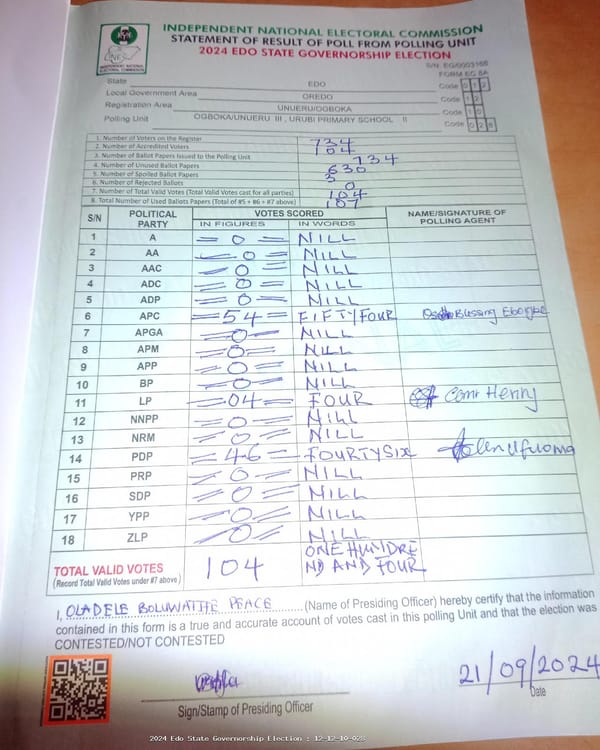 INDEPENDENT NATIONAL ELECTORAL COMMISSION
STATEMENT OF RESULT OF POLL FROM POLLING UNIT
2024 EDO STATE GOVERNORSHIP ELECTION
S/N EG/0003166
FORM EC 8A
State EDO Code 1 2
Local Government Area OREDO Code 1 2
Registration Area UNUERU/OGBOKA Code 1 0
Polling Unit OGBOKA/UNUERU III , URUBI PRIMARY SCHOOL II Code 0 2 8
1. Number of Voters on the Register 734
2. Number of Accredited Voters 104
3. Number of Ballot Papers Issued to the Polling Unit 734
4. Number of Unused Ballot Papers 630
5. Number of Spoiled Ballot Papers
6. Number of Rejected Ballots 0
7. Number of Total Valid Votes (Total Valid Votes cast for all parties) 104
8. Total Number of Used Ballots Papers (Total of #5 + #6 + #7 above) 107
S/N POLITICAL PARTY VOTES SCORED NAME/SIGNATURE OF POLLING AGENT
IN FIGURES IN WORDS
1 A =0= NILL
2 AA =0= NILL
3 AAC =0= NILL
4 ADC =0= NILL
5 ADP =0= NILL
6 APC =54= FIFTY/FOUR Blessing
7 APGA =0= NILL
8 APM =0= NILL
9 APP =0= NILL
10 BP =0= NILL
11 LP =04= FOUR Comr Henry
12 NNPP =0= NILL
13 NRM =0= NILL
14 PDP =46= FOURTYSIX
15 PRP =0= NILL
16 SDP =0= NILL
17 YPP =0= NILL
18 ZLP =0= NILL
TOTAL VALID VOTES 104 ONE HUNDRE
(Record Total Valid Votes under #7 above) ND AND FOUR
I, OLADELE BOLUWATIFE PEACE (Name of Presiding Officer) hereby certify that the information
contained in this form is a true and accurate account of votes cast in this polling Unit and that the election was
CONTESTED/NOT CONTESTED
21/09/2024
Sign/Stamp of Presiding Officer Date
2024 Edo State Governorship Election : 12-12-10-028